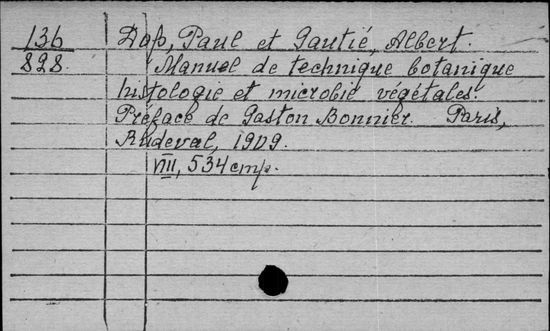 136 Dop, Paul et Gautié, Albert.
828 Manuel de technique botanique
histologie et microbie végétales.
Préface de Gaston Bonnier. Paris,
Rudeval, 1909.
VIII, 534 cmp.